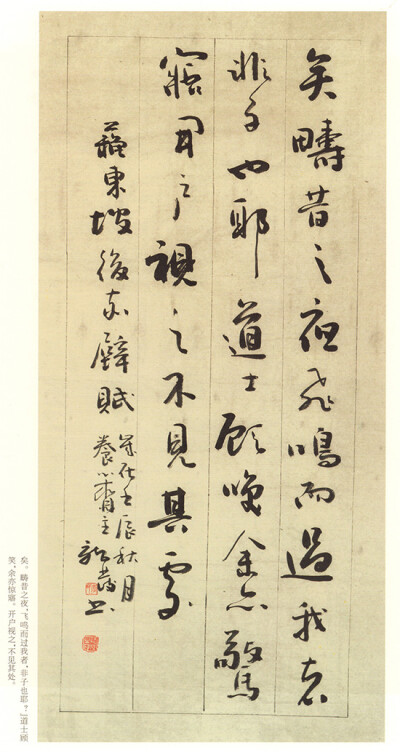 矣疇昔之夜飛鳴而過我者
非子也耶道士顧咲余亦驚
寤開户視之不見其處
蘇東坡後赤壁賦
歲在壬辰秋月
主
書
矣。畴昔之夜，飞鸣而过我者，非子也耶？”道士顾
笑，余亦惊寤。开户视之，不见其处。